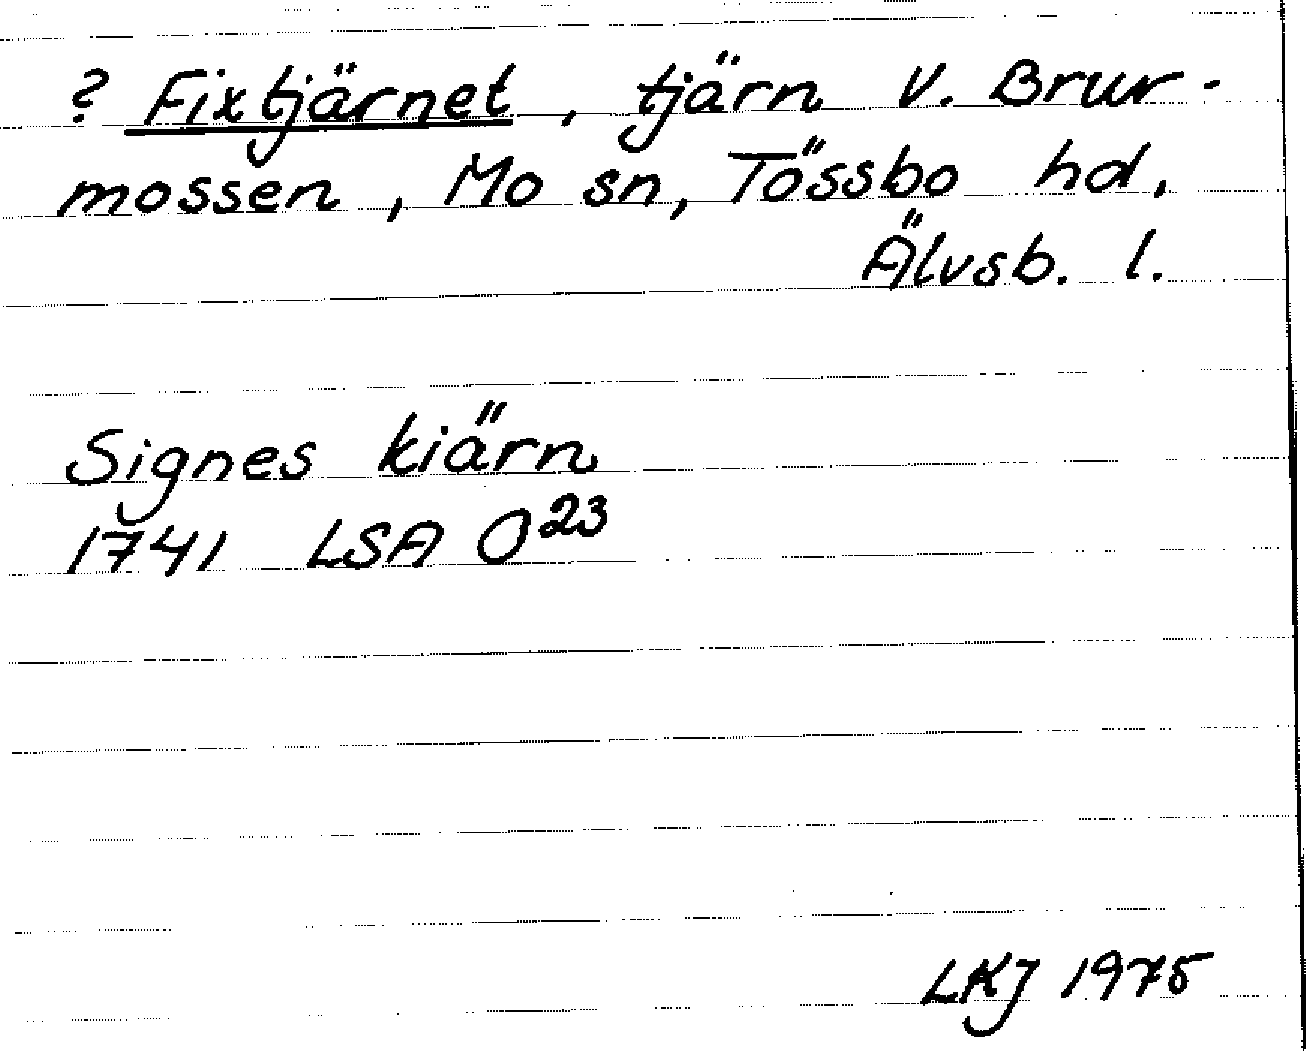 ? Fixtjärnet, tjärn v. Brur-
mossen, Mo sn, Tössbo hd,
Älvsb. l.
Signes kiärn
1741 LSA O²³
LKJ 1975